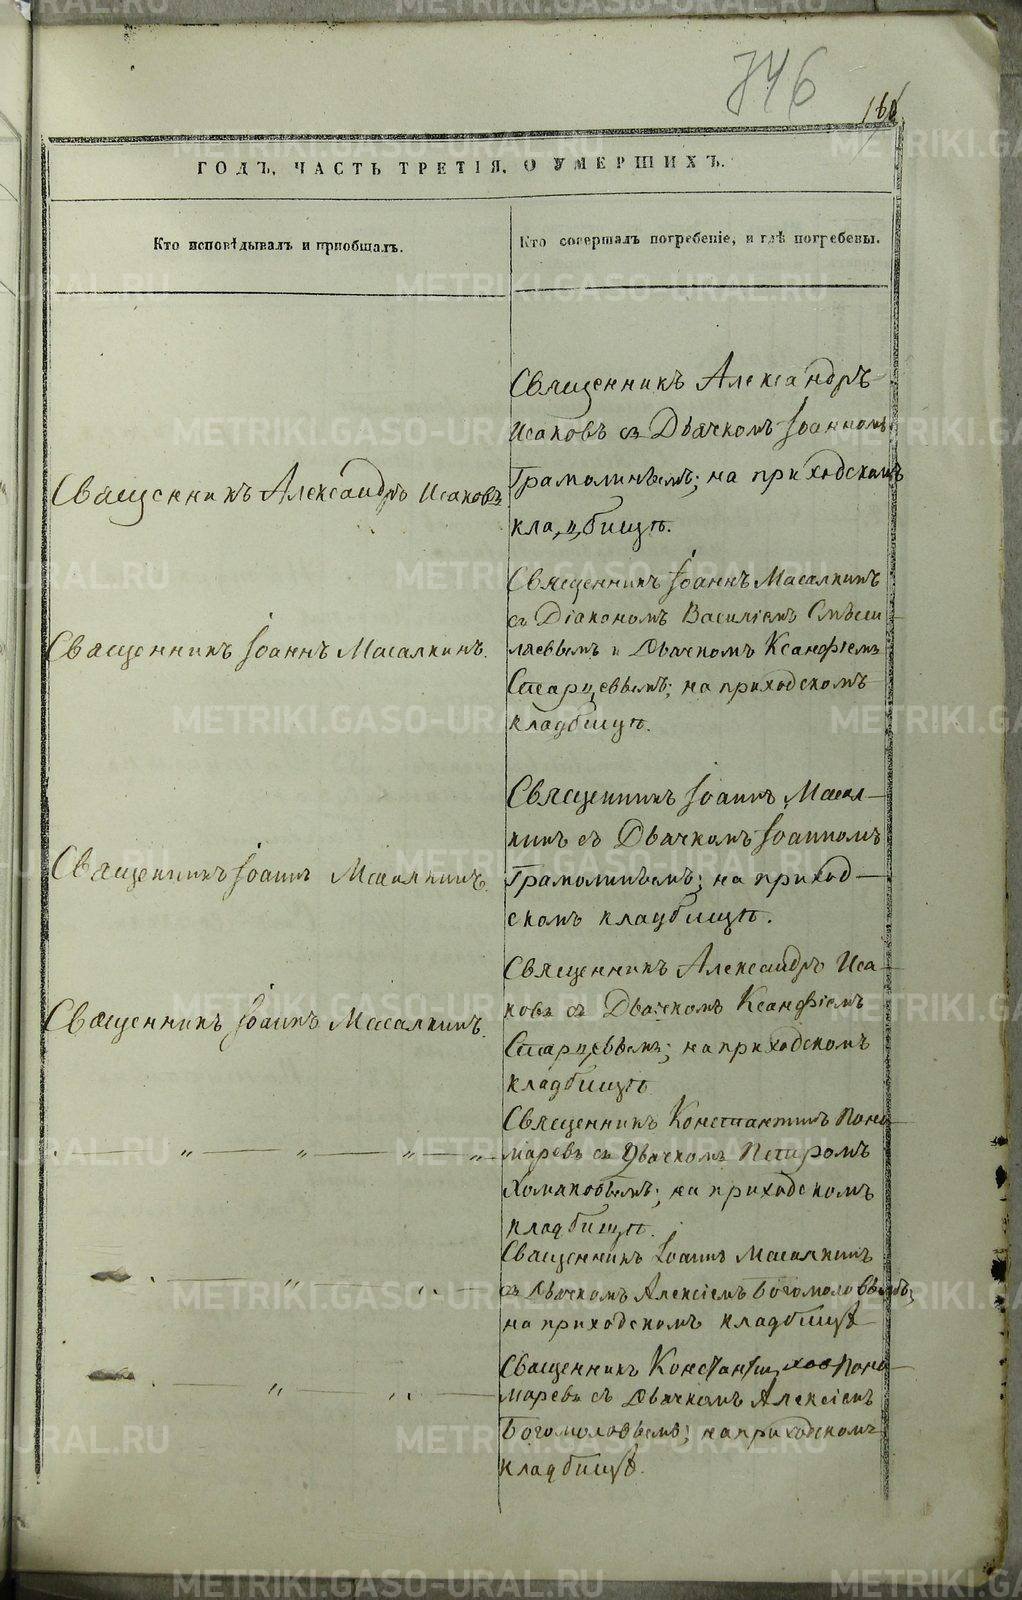 746
ГОДЪ, ЧАСТЬ ТРЕТІЯ, О УМЕРШИХЪ.
Кто исповѣдывалъ и пріобщалъ.
Кто совершалъ погребеніе, и гдѣ погребены.
Священникъ Александръ Исаковъ
Священникъ Александръ
Исаковъ съ Дьячкомъ Іоанномъ
Грамолинымъ; на приходскомъ
кладбищѣ.
Священникъ Іоаннъ Масалкинъ.
Священникъ Іоаннъ Масалкинъ
съ Діакономъ Василіемъ
и Дьячкомъ Ксанфіемъ
Старцевымъ; на приходскомъ
кладбищѣ.
Священникъ Іоаннъ Масалкинъ.
Священникъ Іоаннъ Масал-
кинъ съ Дьячкомъ Іоанномъ
Грамолинымъ; на приход-
скомъ кладбищѣ.
Священникъ Іоаннъ Масалкинъ.
Священникъ Александръ Иса-
ковъ съ Дьячкомъ Ксанфіемъ
Старцевымъ; на приходскомъ
кладбищѣ
— „ — „ — „ — „
Священникъ Константинъ Поно-
маревъ съ Дьячкомъ Петромъ
Хомяковымъ; на приходскомъ
кладбищѣ.
— „ — „ —
Священникъ Іоаннъ Масалкинъ
съ Дьячкомъ Алексіемъ Богомоловымъ;
на приходскомъ кладбищѣ
— „ — „ —
Священникъ Константинъ Поно-
маревъ съ Дьячкомъ Алексіемъ
Богомоловымъ; на приходскомъ
кладбищѣ.
METRIKI.GASO-URAL.RU